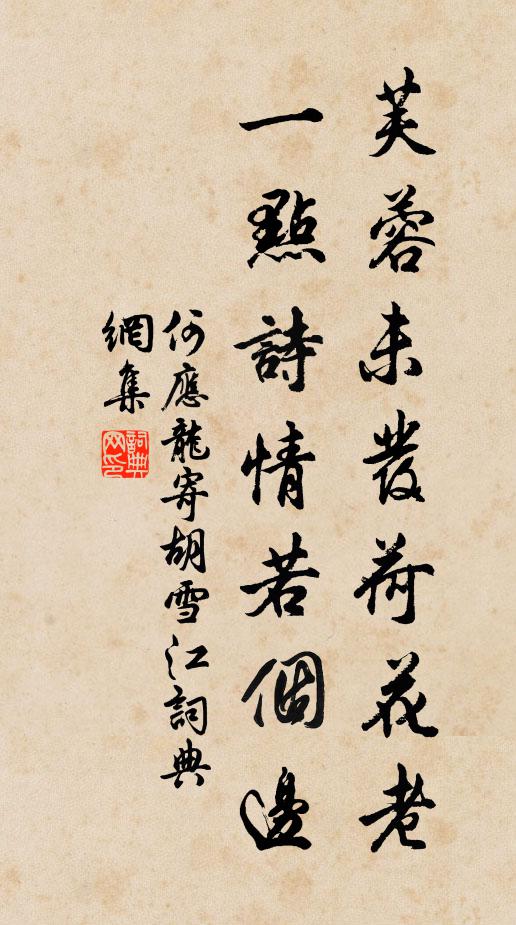 芙蓉未發荷花老
一點詩情若個邊
何應龍寄胡雪江詞典
網集
詞典
网印